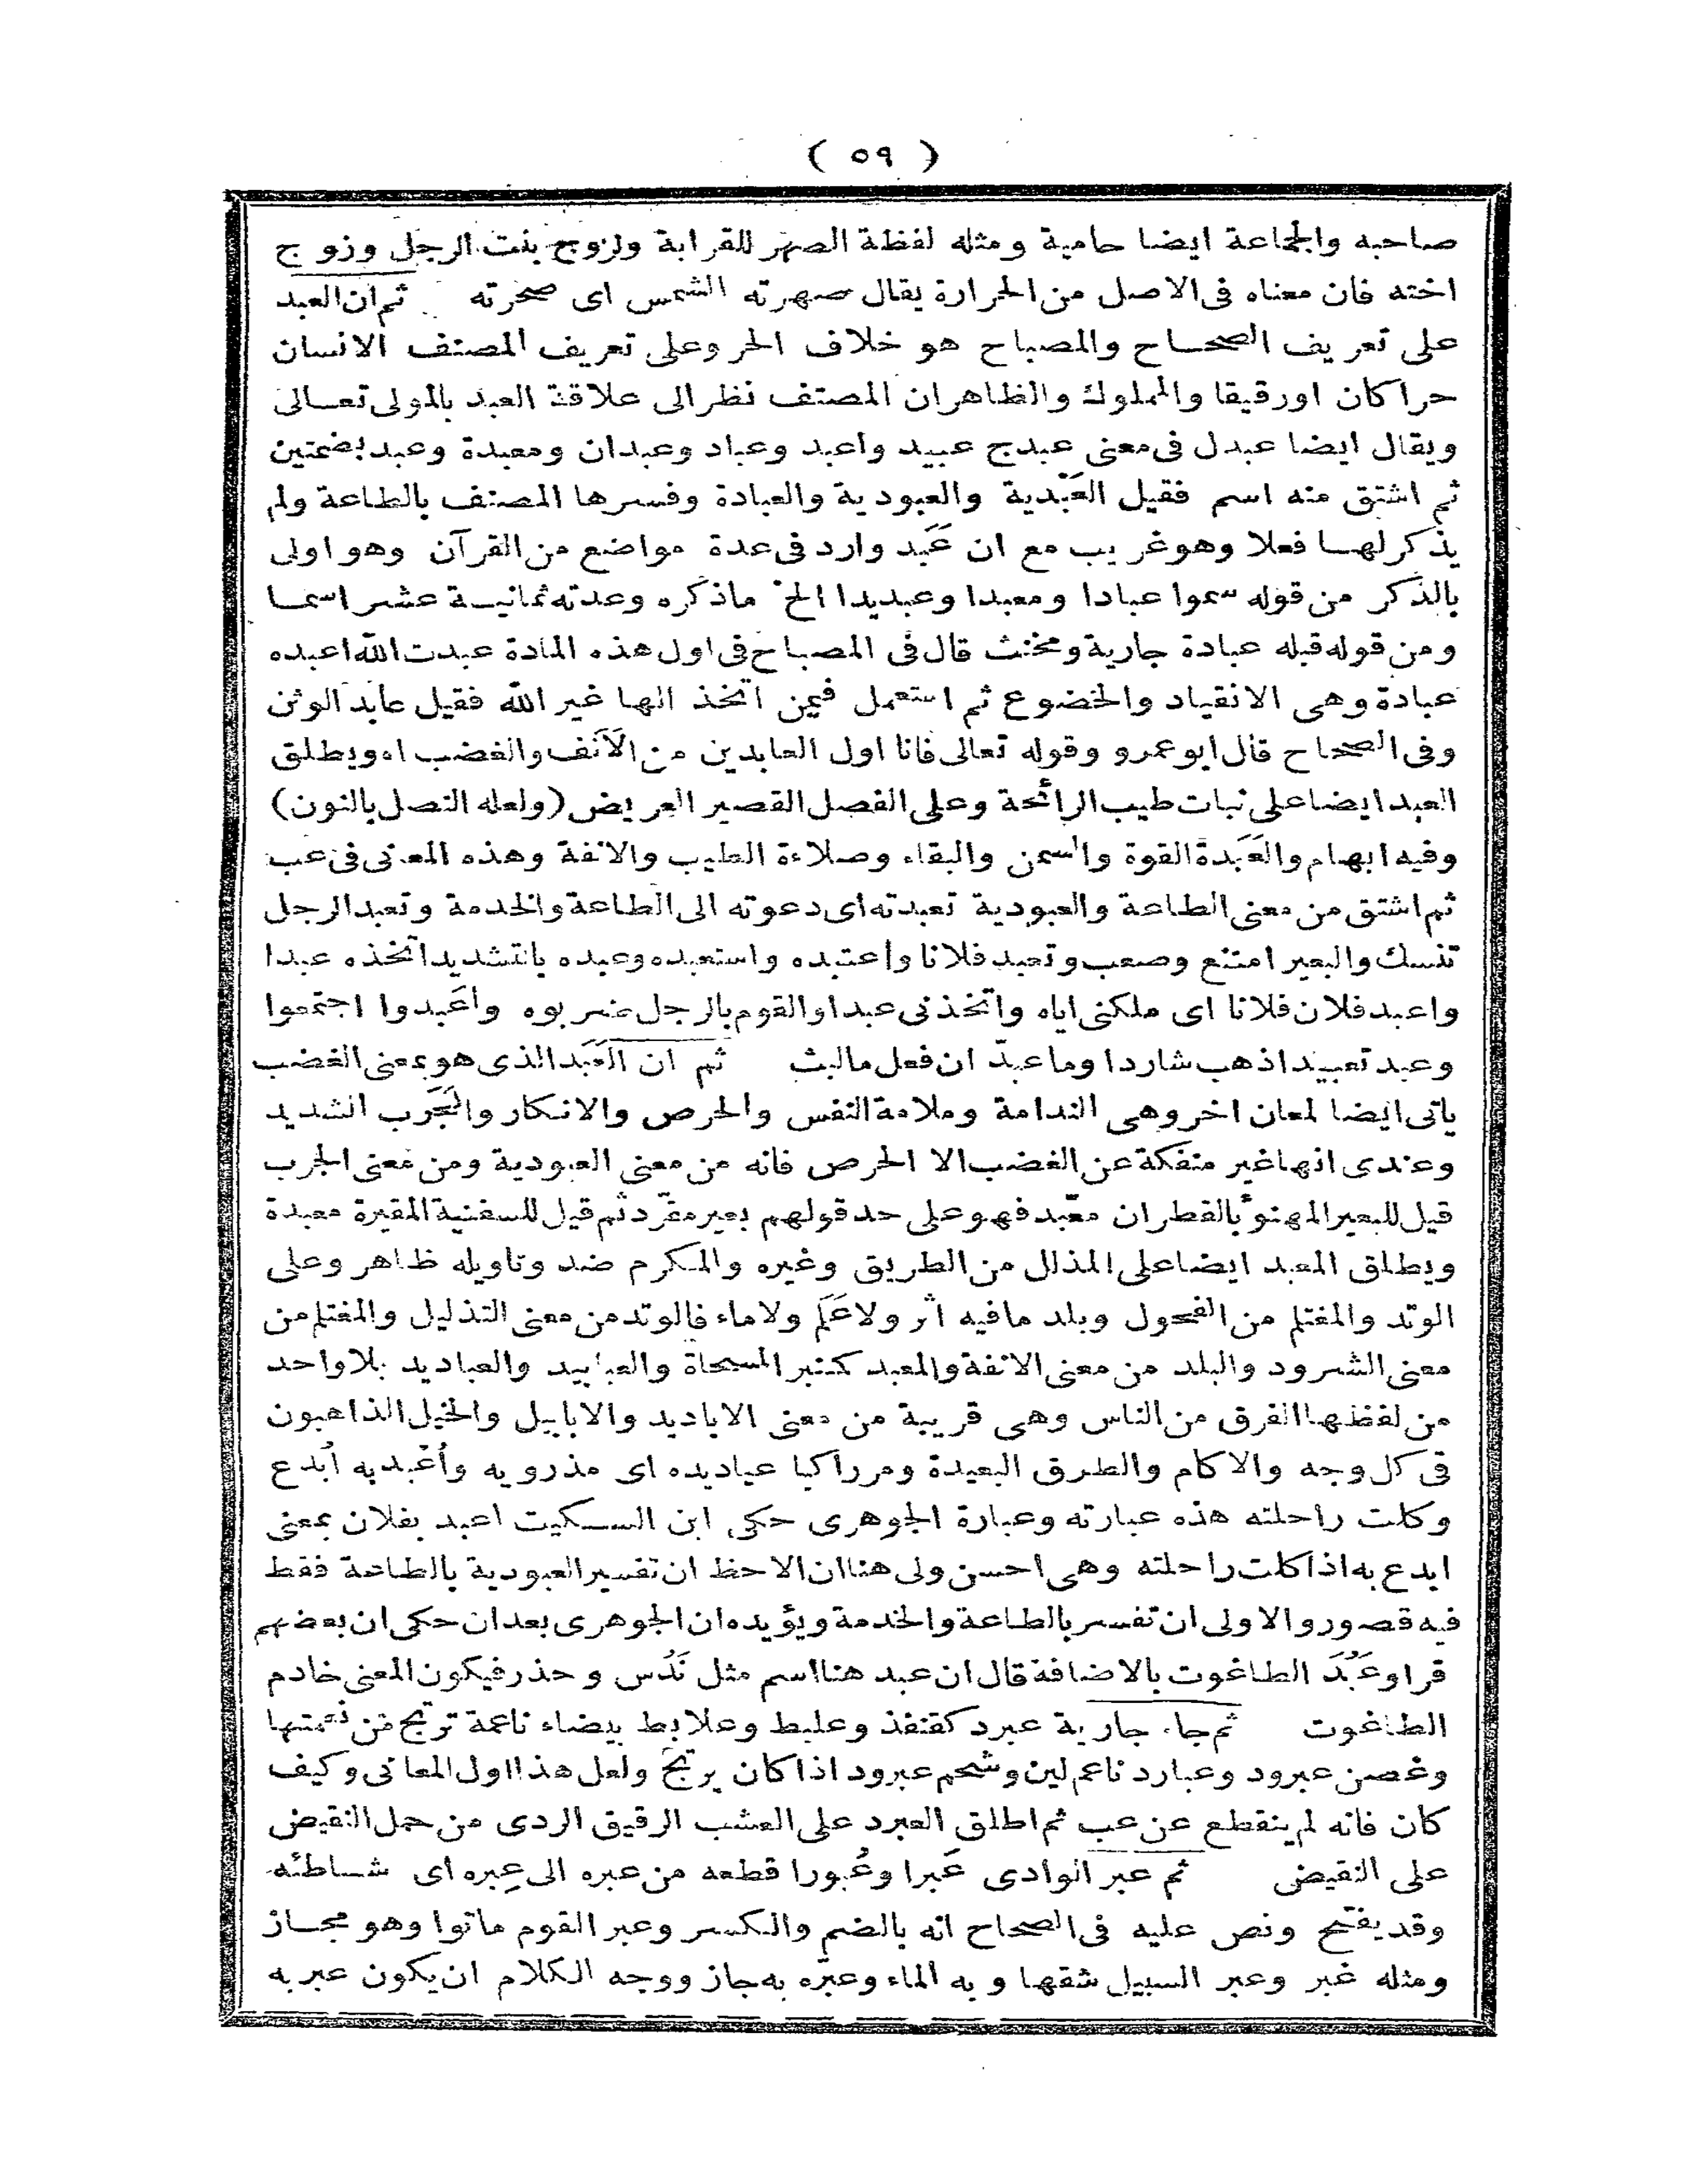 ( ٥٩ )
صاحبه والجماعة ايضا حامية ومثله لفظة الصهر للقرابة ولزوج بنت الرجل وزوج
اخته فان معناه فى الاصل من الحرارة يقال صهرته الشمس اى صخرته ثم ان العبد
على تعريف الصحاح والمصباح هو خلاف الحر وعلى تعريف المصنف الانسان
حرا كان اورقيقا والمملوك والظاهر ان المصنف نظر الى علاقة العبد بالمولى تعالى
ويقال ايضا عبدل فى معنى عبد ج عبيد واعبد وعباد وعبدان ومعبدة وعبد بضمتين
ثم اشتق منه اسم فقيل العَبْدية والعبودية والعبادة وفسرها المصنف بالطاعة ولم
يذكر لها فعلا وهو غريب مع ان عَبَد وارد فى عدة مواضع من القرآن وهو اولى
بالذكر من قوله سموا عبادا ومعبدا وعبديدا الخ ماذكره وعدته ثمانية عشر اسما
ومن قوله قبله عبادة جارية ومخنث قال فى المصباح فى اول هذه المادة عبدت الله اعبده
عبادة وهى الانقياد والخضوع ثم استعمل فيمن اتخذ الها غير الله فقيل عابد الوثن
وفى الصحاح قال ابو عمرو وقوله تعالى فانا اول العابدين من الاَنَف والغضب اه ويطلق
العبد ايضا على نبات طيب الرائحة وعلى الفصل القصير العريض (ولعله النصل بالنون)
وفيه ابهام والعَبَدة القوة والسمن والبقاء وصلاءة الطيب والانفة وهذه المعنى فى عب
ثم اشتق من معنى الطاعة والعبودية تعبدته اى دعوته الى الطاعة والخدمة وتعبد الرجل
تنسك والبعير امتنع وصعب وتعبد فلانا واعتبده واستعبده وعبده بالتشديد اتخذه عبدا
واعبد فلان فلانا اى ملكنى اياه واتخذنى عبدا والقوم بالرجل ضربوه واعبدوا اجتمعوا
وعبد تعبيد اذهب شاردا وما عبدّ ان فعل مالبث ثم ان العَبَد الذى هو بمعنى الغضب
ياتى ايضا لمعان اخر وهى الندامة وملامة النفس والحرص والانكار والجَرَب الشديد
وعندى انها غير منفكة عن الغضب الا الحرص فانه من معنى العبودية ومن معنى الجرب
قيل للبعير المهنوء بالقطران معّبد فهو على حد قولهم بعير مقرّد ثم قيل للسفنية المقيرة معبدة
ويطلق المعبد ايضا على المذلل من الطريق وغيره والمكرم ضد وتاويله ظاهر وعلى
الوتد والمغتلم من الفحول وبلد مافيه اثر ولاعَلَم ولاماء فالوتد من معنى التذليل والمغتلم من
معنى الشرود والبلد من معنى الانفة والمعبد كمنبر المسحاة والعبابيد والعباديد بلا واحد
من لفظها الفرق من الناس وهى قريبة من معنى الاباديد والابابيل والخيل الذاهبون
فى كل وجه والاكام والطرق البعيدة ومر راكبا عباديده اى مذرويه وأُعبد به اُبدع
وكلت راحلته هذه عبارته وعبارة الجوهرى حكى ابن السكيت اعبد بفلان بمعنى
ابدع به اذا كلت راحلته وهى احسن ولى هنا ان الاحظ ان تفسير العبودية بالطاعة فقط
فيه قصور والاولى ان تفسر بالطاعة والخدمة ويؤيده ان الجوهرى بعد ان حكى ان بعضهم
قرا وعَبُدَ الطاغوت بالاضافة قال ان عبد هنا اسم مثل نَدُس وحذر فيكون المعنى خادم
الطاغوت ثم جاء جارية عبرد كقنفذ وعلبط وعلابط بيضاء ناعمة ترتج من نعمتها
وغصن عبرود وعبارد ناعم لين وشحم عبرود اذا كان يرتج ولعل هذا اول المعانى وكيف
كان فانه لم ينقطع عن عب ثم اطلق العبرد على العشب الرقيق الردى من حمل النقيض
على النقيض ثم عبر الوادى عَبرا وعُبورا قطعه من عبره الى عِبره اى شاطئه
وقد يفتح ونص عليه فى الصحاح انه بالضم والكسر وعبر القوم ماتوا وهو مجاز
ومثله غبر وعبر السبيل شقها وبه الماء وعبّره به جاز ووجه الكلام ان يكون عبر به